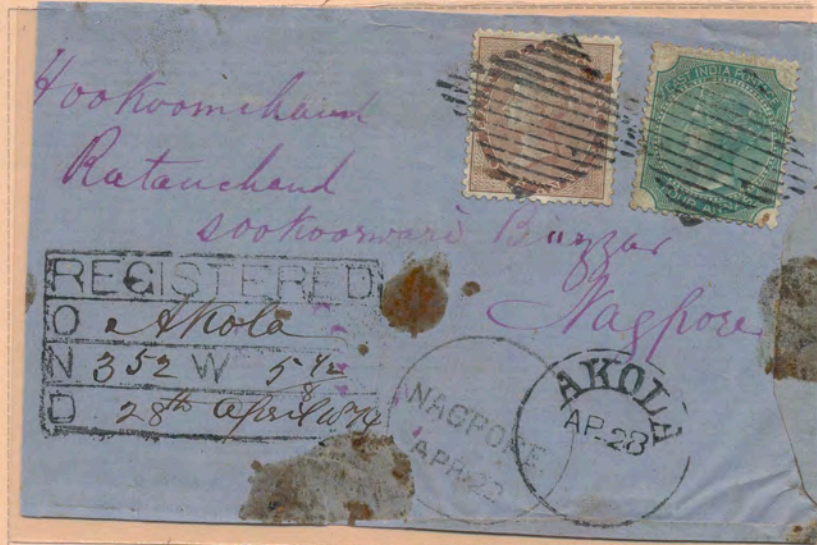 Hookoomchand
Ratanchand
Sookoorwari Bazzar
Nagpore
EAST INDIA POSTAGE
FOUR ANNAS
REGISTERED
O Akola
N 352 W
D 28th April 1874
NAGPORE
APR
AKOLA
AP-28